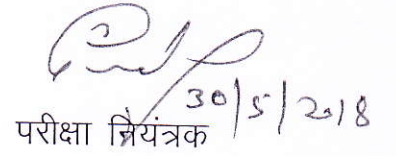 30/5/2018
परीक्षा नियंत्रक